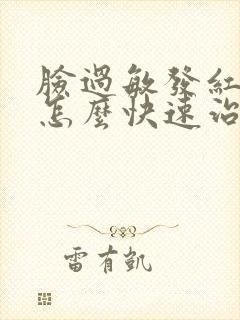 臉過敏發紅
怎麼快速治
雷有凱